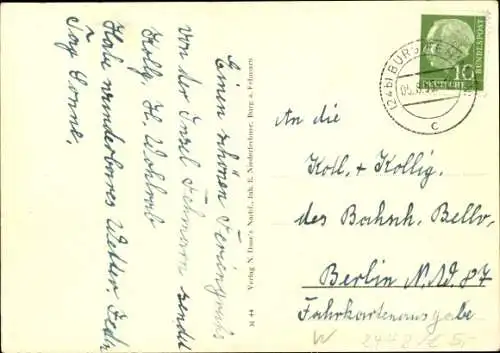 Einen schönen Feriengruß
von der Insel Fehmarn sendet
Kollg. H. Wohlrab
Habe wunderbares Wetter. Jeden
Tag Sonne.
M 44 Verlag N. Dose's Nachf., Inh. E. Niederlechner, Burg a. Fehmarn
(24b) BURG
05.
c
10
DEUTSCHE
BUNDESPOST
An die
Koll. + Kollig.
des Bahnh. Bellev.
Berlin N.W. 87
Fahrkartenausgabe
W